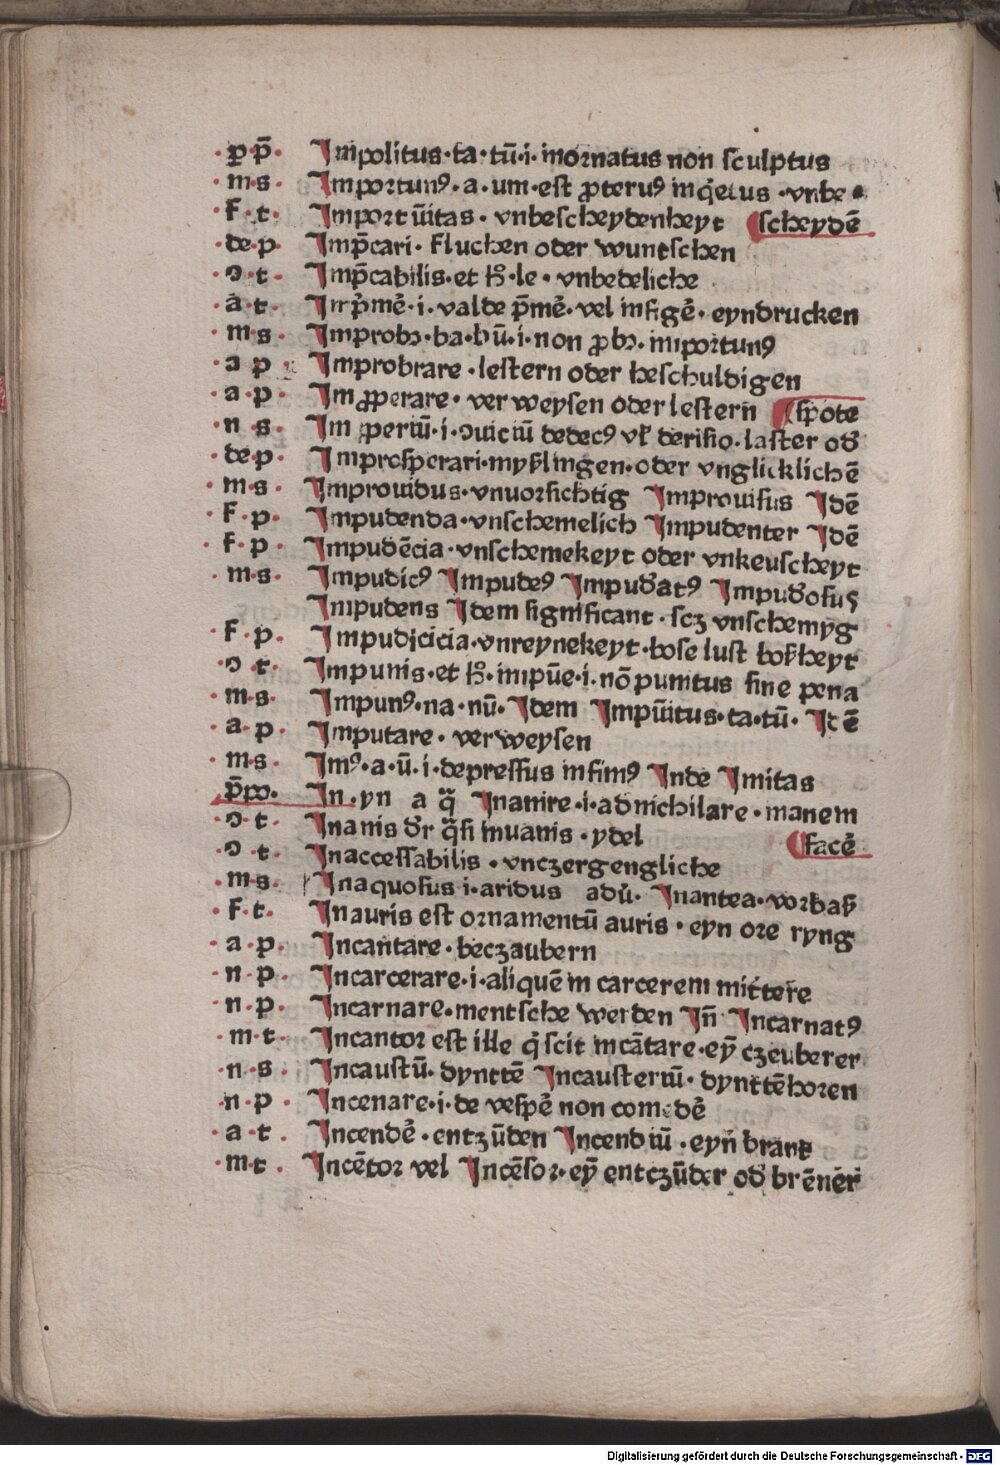 ·ꝑ·p̄· Impolitus·ta·tū·i·inornatus non sculptus
·m·s· Importunꝰ·a·um·est ꝓteruꝰ inq̇etus·vnbe
·f·t· Import ūitas·vnbescheydenheyt scheydē
·de·p· Imp̄cari·fluchen oder wuntschen
·ɔ·t· Imp̄cabilis·et h̄·le·vnbedeliche
·a·t· Imṗmē·i·valde p̄mē·vel infigē·eyndrucken
·m·s· Improbꝰ·ba·bū·i·non ꝓbꝰ·inportunꝰ
·a p· Improbrare·lestern oder beschuldigen
·a·p· Im ꝓperare·ver weysen oder lestern spote
·n s· Im ꝓperiū·i·ɔuiciū dedecꝰ vł derisio·laster od̄
·de·p· Improsperari·myßlingen·oder vnglicklichē
·m·s· Improuidus·vnuorsichtig Improuisus Idē
·f·p· Impudenda·vnschemelich Impudenter Idē
·f·p· Impudēcia·vnschemekeyt oder vnkeuscheyt
·m·s· Impudicꝰ Impudeꝰ Impud̄atꝰ Impud̄osuſ
Inpudens Idem significant·scꝫ vnschemyg
f·p· Impudicicia·vnreynekeyt·bose lust boßheyt
·ɔ·t· Impunis·et h̄·inpūe·i·nō punitus sine pena
·m·s· Impunꝰ·na·nū·Idem Impūitus·ta·tū·Idē
·a·p· Imputare·verweysen
·m·s· Imꝰ·a·ū·i·depressus infimꝰ Inde Imitas
p̄po· In·yn a q̄ Inanire·i·adnichilare·inanem
·ɔ·t· Inanis dr̄ q̄si inuanis·ydel facē
·ɔ·t· Inaccessabilis·vnczergengliche
·m·s· Inaquosus i·aridus adū·Inantea·vorbaß
·f·t· Inauris est ornamentū auris·eyn ore ryng
·a·p· Incantare·beczaubern
·n·p· Incarcerare·i·aliquē in carcerem mittere
·n·p· Incarnare·mentsche werden Iñ Incarnatꝰ
·m·t· Incantor est ille q̇ scit incātare·eȳ czeuberer
·n·s· Incaustū·dynttē Incausteriū·dynttēhoren
·n·p· Incenare·i·de vespē non comedē
·a·t· Incendē·entzūden Incendiū·eyn brant
·m·t· Incētor vel Incēsor·eȳ entczūder od̄ brēnēr
Digitalisierung gefördert durch die Deutsche Forschungsgemeinschaft · DFG